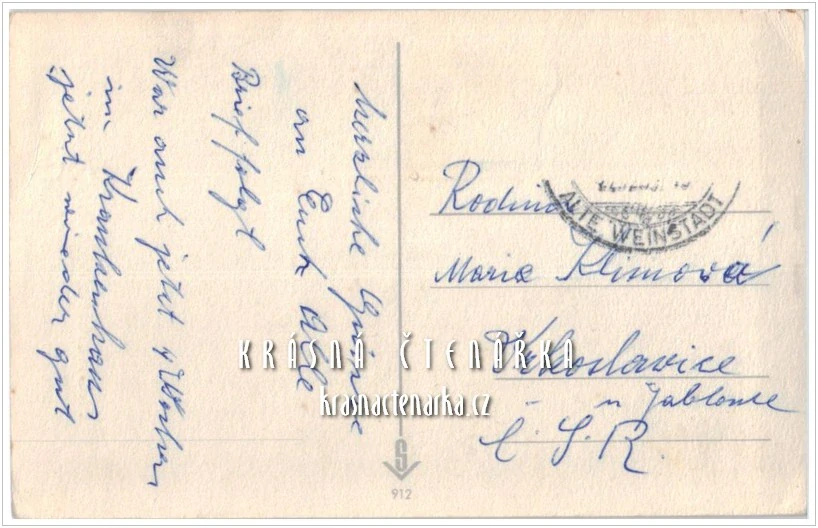 Herzliche Grüsse
an Euch Alle
Brief folgt
War auch jetzt 4 Wochen
im Krankenhaus
jetzt wieder gut
ALTE WEINSTADT
Rodina
Marie Klimová
u Jablonce
Č. S. R.
KRÁSNÁ ČTENÁŘKA
krasnactenarka.cz
S
912